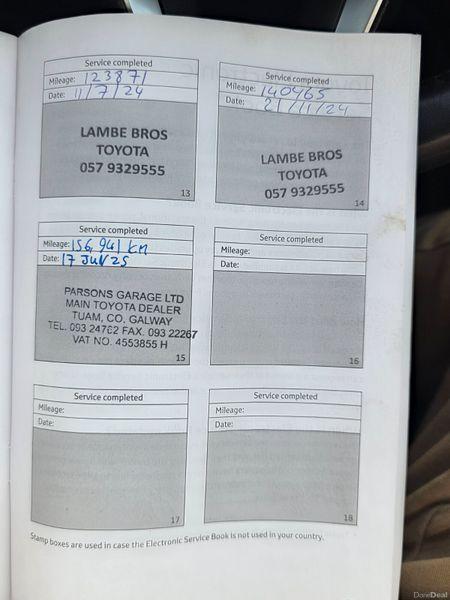 Service completed
Mileage: 123871
Date: 11/7/24
LAMBE BROS
TOYOTA
057 9329555
13
Service completed
Mileage: 140465
Date: 21/11/24
LAMBE BROS
TOYOTA
057 9329555
14
Service completed
Mileage: 156,941 KM
Date: 17 JUN 25
PARSONS GARAGE LTD
MAIN TOYOTA DEALER
TUAM, CO. GALWAY
TEL. 093 24762 FAX. 093 22267
VAT NO. 4553855 H
15
Service completed
Mileage:
Date:
16
Service completed
Mileage:
Date:
17
Service completed
Mileage:
Date:
18
Stamp boxes are used in case the Electronic Service Book is not used in your country.
DoneDeal